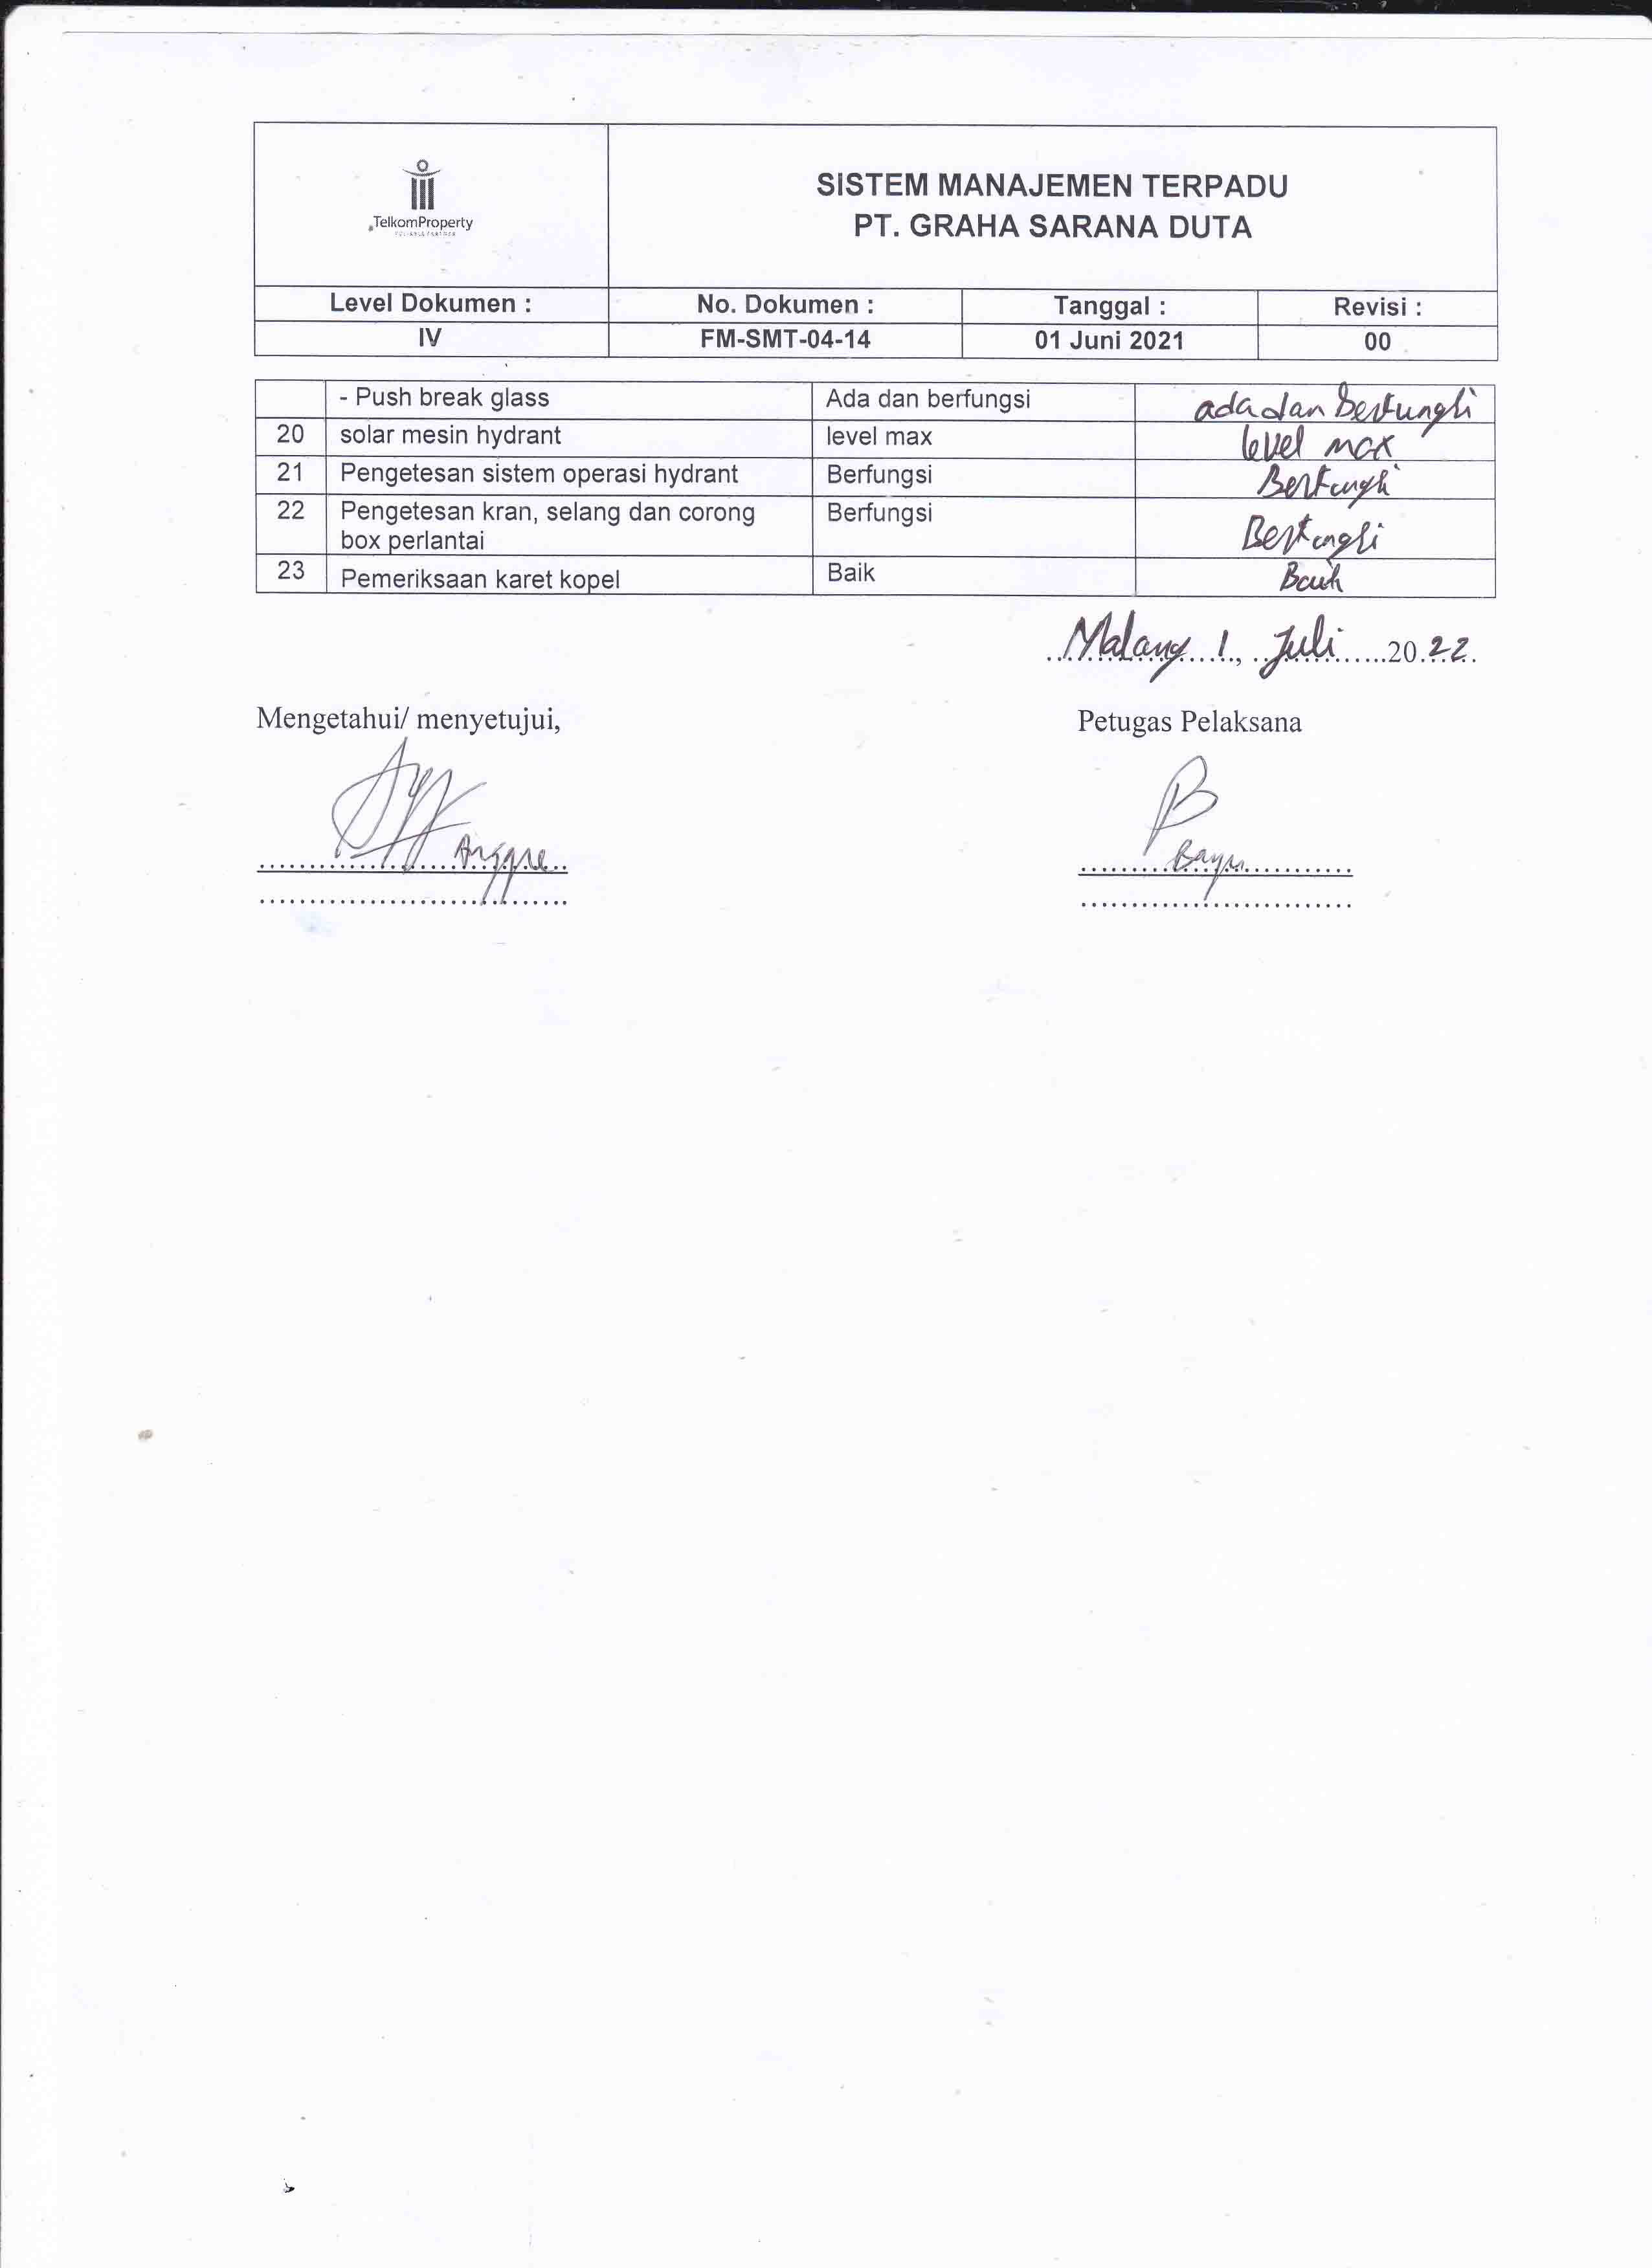 TelkomProperty
SISTEM MANAJEMEN TERPADU
PT. GRAHA SARANA DUTA
Level Dokumen : No. Dokumen : Tanggal : Revisi :
IV FM-SMT-04-14 01 Juni 2021 00
- Push break glass Ada dan berfungsi ada dan berfungsi
20 solar mesin hydrant level max level max
21 Pengetesan sistem operasi hydrant Berfungsi Berfungsi
22 Pengetesan kran, selang dan corong Berfungsi Berfungsi
box perlantai
23 Pemeriksaan karet kopel Baik Baik
Malang 1, Juli 2022.
Mengetahui/ menyetujui, Petugas Pelaksana
Bayu